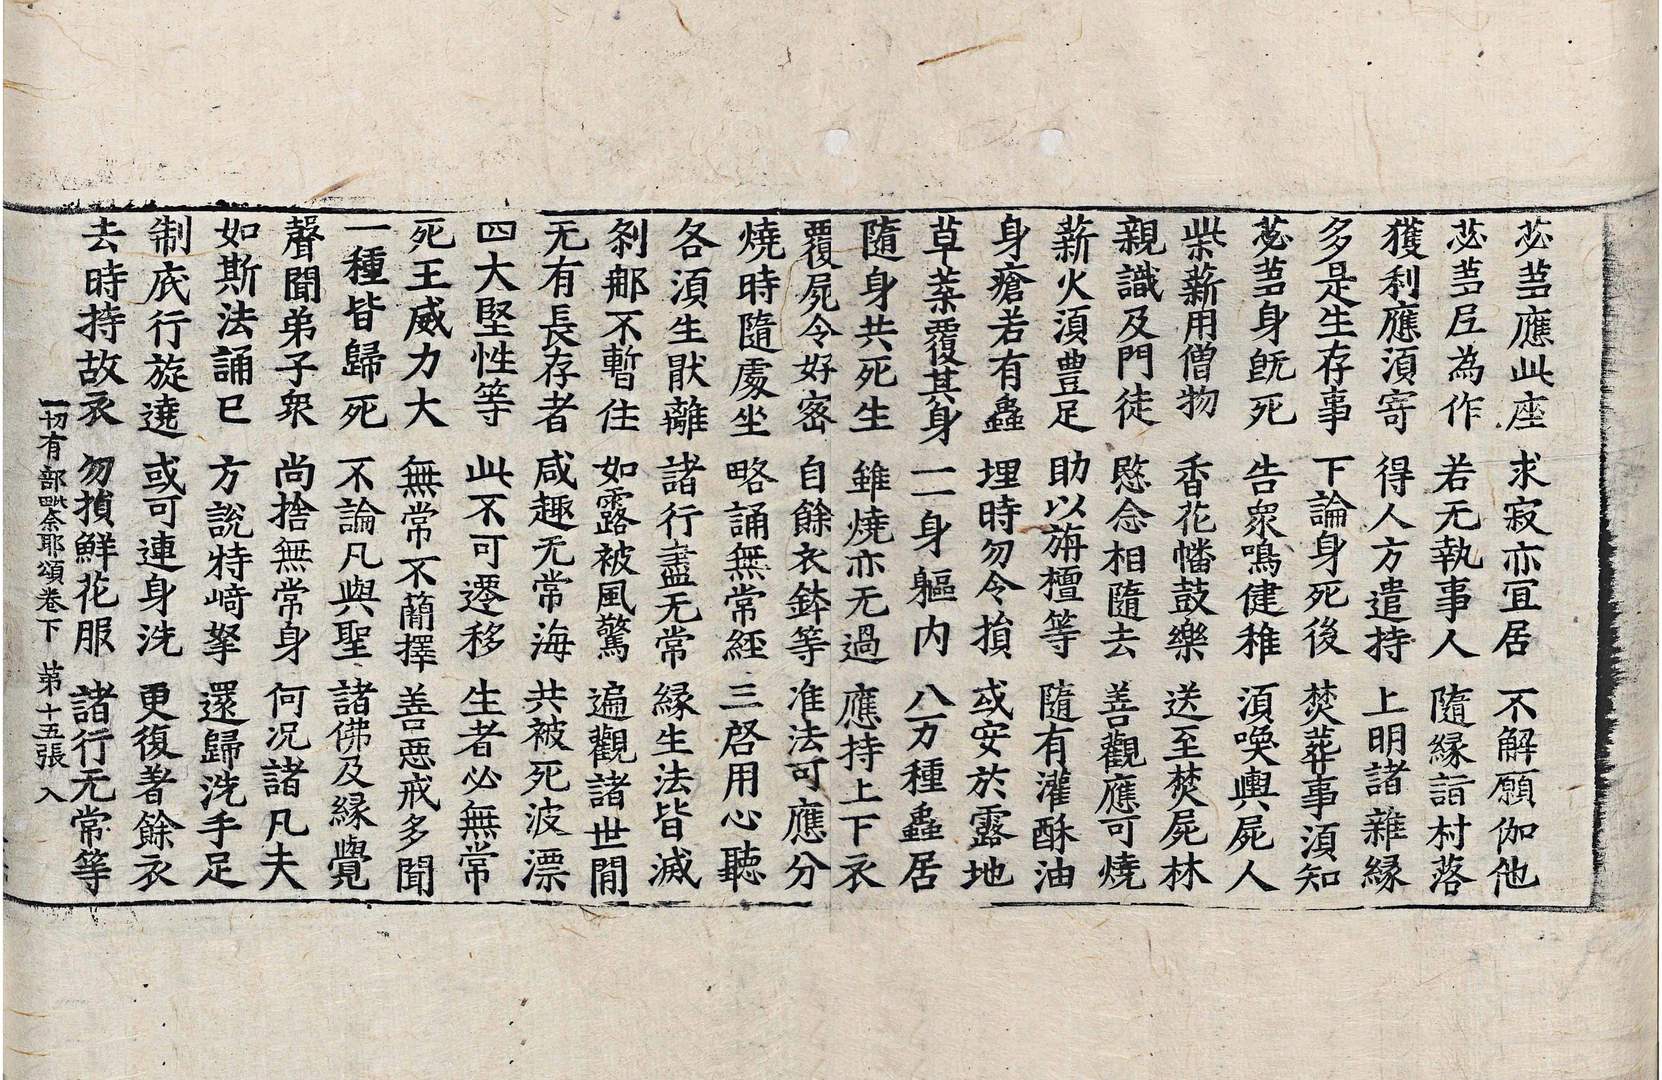 苾蒭應此座 求寂亦宜居 不解願伽他
苾蒭㞐為作 若无執事人 隨縁詣村落
獲利應湏寄 得人方遣持 上明諸雜縁
多是生存事 下論身死後 焚葬事湏知
苾蒭身既死 告衆鳴健稚 湏喚輿屍人
柴薪用僧物 香花幡鼓樂 送至焚屍林
親識及門徒 愍念相隨去 善觀應可燒
薪火湏豊足 助以旃檀等 隨有灌酥油
身瘡若有蟲 埋時勿令損 或安於露地
草葉覆其身 一一身軀内 八万種蟲居
隨身共死生 雖燒亦无過 應持上下衣
覆屍令好密 自餘衣鉢等 准法可應分
燒時隨處坐 略誦無常經 三啓用心聽
各湏生猒離 諸行盡无常 縁生法皆滅
刹那不暫住 如露被風驚 遍觀諸世間
无有長存者 咸趣无常海 共被死波漂
四大堅性等 此不可遷移 生者必無常
死王威力大 無常不蕳擇 善惡戒多聞
一種皆歸死 不論凡與聖 諸佛及縁覺
聲聞弟子衆 尚捨無常身 何況諸凡夫
如斯法誦已 方說特崎拏 還歸洗手足
制底行旋遶 或可連身洗 更復著餘衣
去時持故衣 勿損鮮花服 諸行无常等
一切有部毗奈耶頌卷下 第十五張 入